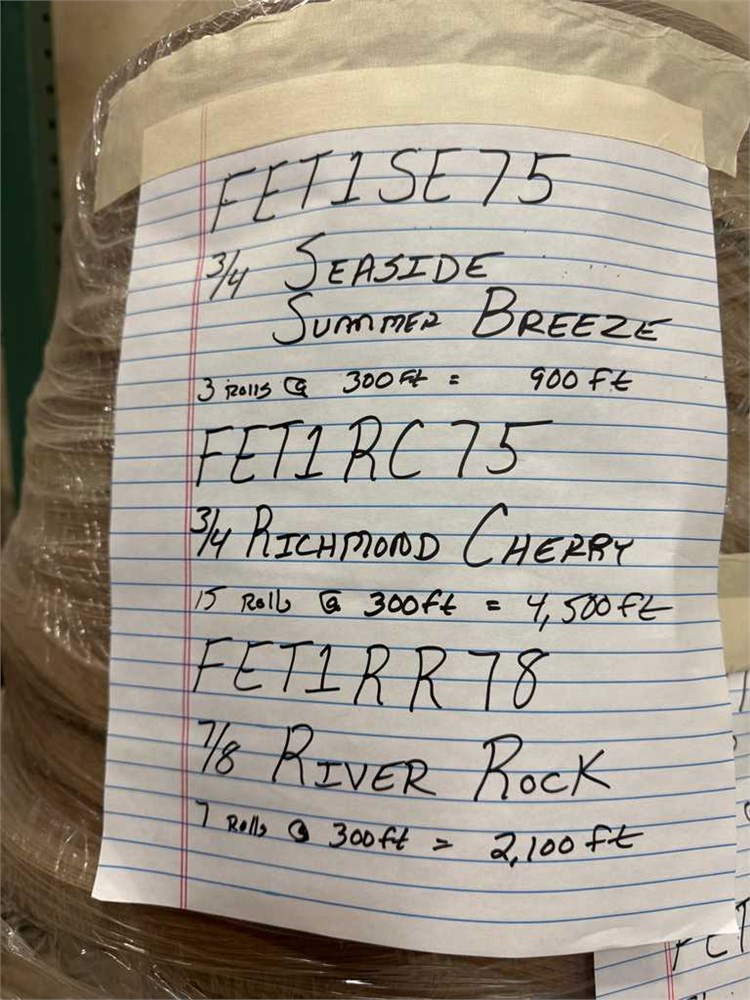 FET1SE75
3/4 SEASIDE
SUMMER BREEZE
3 Rolls @ 300 Ft = 900 Ft
FET1RC75
3/4 RICHMOND CHERRY
15 Rolls @ 300ft = 4,500 Ft
FET1RR78
7/8 RIVER ROCK
7 Rolls @ 300ft = 2,100 ft
FET